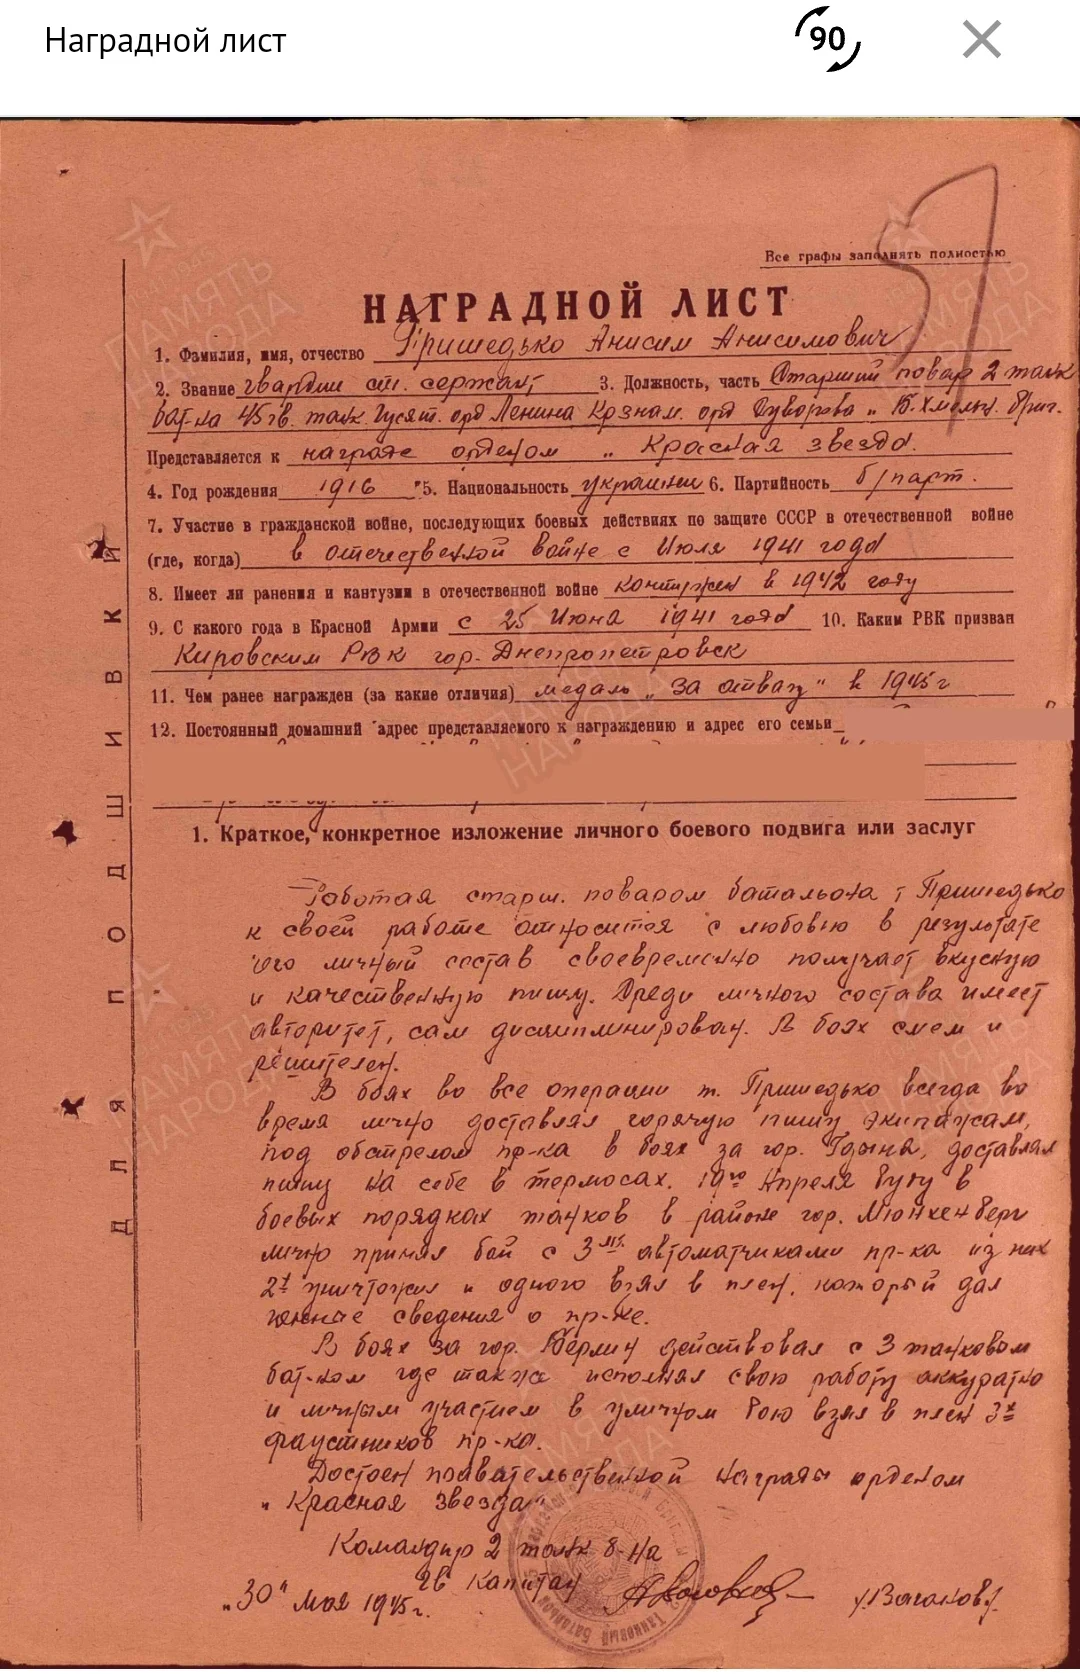 Наградной лист
90
Все графы заполнять полностью
НАГРАДНОЙ ЛИСТ
1. Фамилия, имя, отчество Пришедько Анисим Анисимович
2. Звание гвардии ст. сержант 3. Должность, часть Старший повар 2 танк
бат-на 45 гв. танк. Гусят. орд Ленина Кр знам. орд Суворова „ Б. Хмельн. бриг.
Представляется к награде орденом „ Красная звезда.
4. Год рождения 1916 5. Национальность украинец 6. Партийность б/парт.
7. Участие в гражданской войне, последующих боевых действиях по защите СССР в отечественной войне
(где, когда) в отечественной войне с Июля 1941 года
8. Имеет ли ранения и кантузии в отечественной войне контужен в 1942 году
9. С какого года в Красной Армии с 25 Июна 1941 года 10. Каким РВК призван
Кировским РВК гор. Днепропетровск
11. Чем ранее награжден (за какие отличия) медаль „За отвагу" в 1945 г
12. Постоянный домашний адрес представляемого к награждению и адрес его семьи
1. Краткое, конкретное изложение личного боевого подвига или заслуг
Работая старш. поваром батальона т Пришедько
к своей работе относится с любовью в результате
чего личный состав своевременно получает вкусную
и качественную пищу. Среди личного состава имеет
авторитет, сам дисциплинирован. В боях смел и
решителен.
В боях во все операции т. Пришедько всегда во
время лично доставлял горячую пищу экипажам,
под обстрелом пр-ка в боях за гор. Гдына, доставлял
пищу на себе в термосах. 19го Апреля буду в
боевых порядках танков в районе гор. Мюнхенберг
лично принял бой с 3 мя автоматчиками пр-ка из них
2х уничтожил и одного взял в плен, который дал
ценные сведения о пр-ке.
В боях за гор. Берлин действовал с 3 танковым
бат-ном где также исполнял свою работу аккуратно
и личным участием в уличном бою взял в плен 3х
фаустников пр-ка.
Достоен правательственной награды орденом
„ Красная звезда"
Командир 2 танк б-на
Гв капитан /Ваганков/.
„30" мая 1945 г.
ДЛЯ ПОДШИВКИ
ПАМЯТЬ НАРОДА